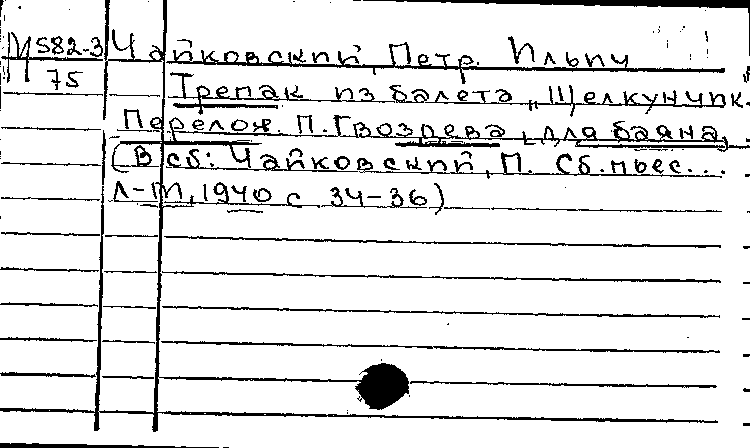 М 582-3 Чайковский, Петр. Ильич
75
Трепак из балета „Щелкунчик.
Перелож. П. Гвоздева, для баяна,
(В сб: Чайковский, П. Сб. пьес...
Л-М, 1940 с 34-36)